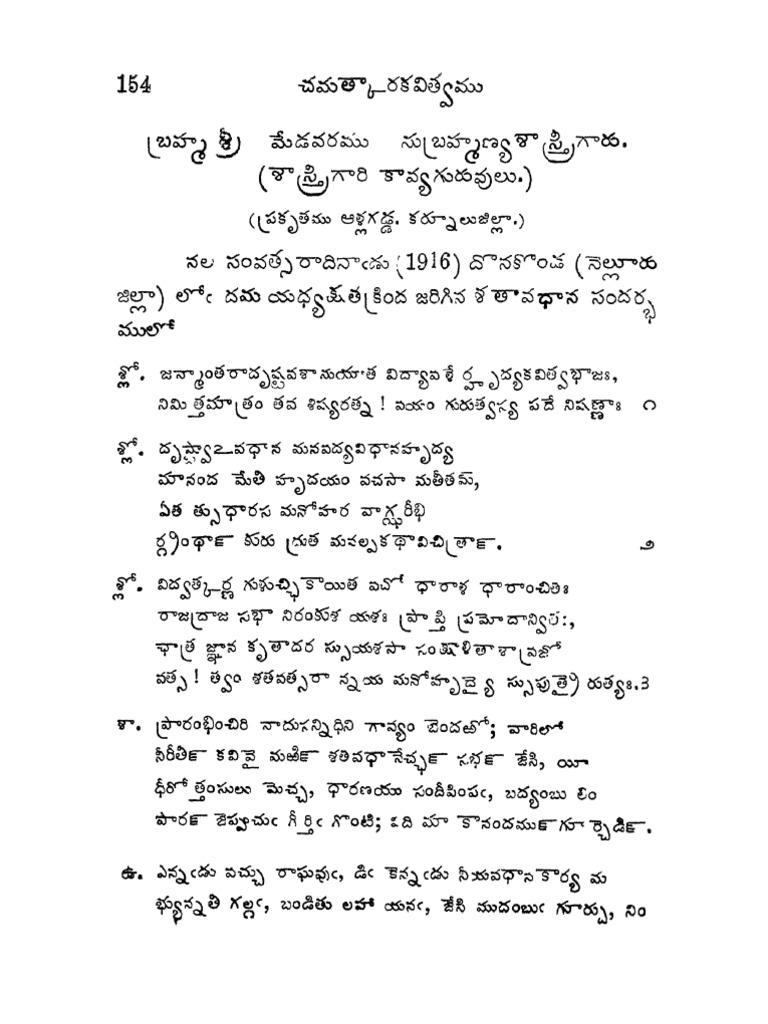 154 చమత్కారకవిత్వము
బ్రహ్మ శ్రీ మేడవరము సుబ్రహ్మణ్యశాస్త్రీగారు.
(శాస్త్రిగారి కావ్యగురువులు.)
(ప్రకృతము ఆళ్లగడ్డ. కర్నూలుజిల్లా.)
నల సంవత్సరాదినాఁడు (1916) దొనకొండ (నెల్లూరు
జిల్లా) లోఁ దమ యధ్యక్షతక్రింద జరిగిన శతావధాన సందర్భ
ములో
శ్లో. జన్మాంతరాదృష్టవశానుయాత విద్యావశే ర్హృద్యకవిత్వభాజః,
నిమిత్తమాత్రం తవ శిష్యరత్న ! వయం గురుత్వస్య పదే నిషణ్ణాః ౧
శ్లో. దృష్ట్వాఽవధాన మనవద్యవిధానహృద్య
మానంద మేతి హృదయం వచసా మతీతమ్,
ఏత త్సుధారస మనోహర వాగ్ఝరీభి
ర్గ్రంథా౯ కురు ద్రుత మనల్పకథావిచిత్రా౯. ౨
శ్లో. విద్వత్కర్ణ గుళుచ్ఛికాయిత వచో ధారాశ ధారాంచితః
రాజద్రాజ సభా నిరంకుశ యశః ప్రాప్తి ప్రమోదాన్వితః,
ఛాత్ర జ్ఞాన కృతాదర స్సుయశసా సంక్షాళితాశావ్రజో
వత్స ! త్వం శతవత్సరా న్నయ మనోహృద్యై స్సుపుత్రై రుత్యః.౩
శా. ప్రారంభించిరి నాదుసన్నిధిని గావ్యం బెందఱో; వారిలో
నీరీతి౯ కవివై మఱి౯ శతవధానేచ్ఛ౯ సభ౯ జేసి, యీ
ధీరోత్తంసులు మెచ్చ, ధారణయు సందీపింపఁ, బద్యంబు లిం
పార౯ జెప్పుచుఁ గీర్తిఁ గొంటి; విది మా కానందము౯ గూర్చెడి౯.
ఉ. ఎన్నఁడు వచ్చు రాఘవుఁ, డిఁ కెన్నఁడు నీయవధానకార్య మ
భ్యున్నతి గల్గఁ, బండితు లహా యనఁ, జేసి ముదంబుఁ గూర్చు, నిం